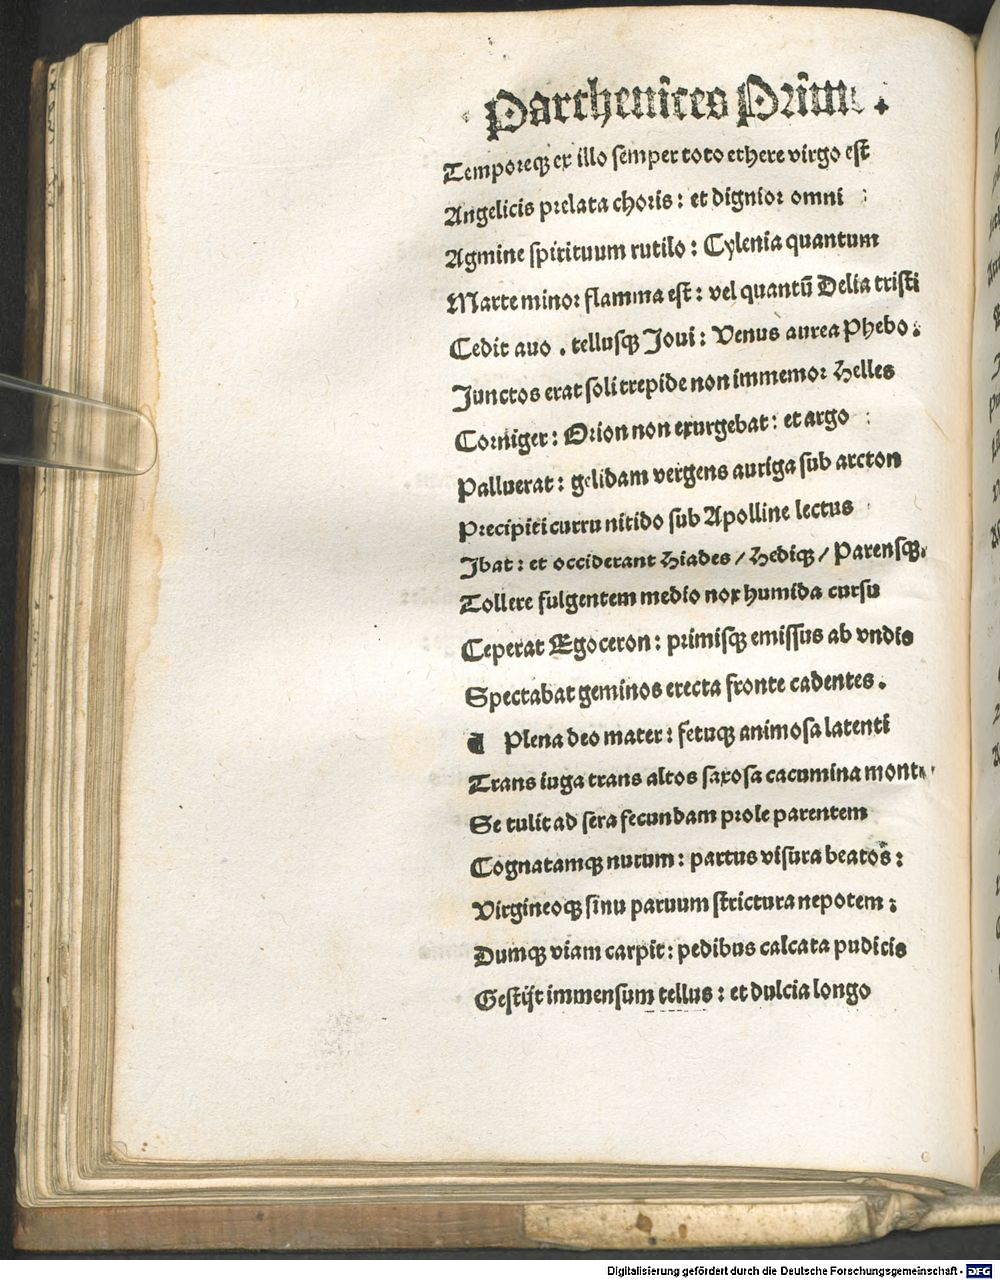 Parthenices Prime.
Temporeqꝫ ex illo semper toto ethere virgo est
Angelicis prelata choris: et dignior omni
Agmine spirituum rutilo: Cylenia quantum
Marte minor flamma est: vel quantū Delia tristi
Cedit auo. tellusqꝫ Joui: Venus aurea Phebo:
Junctos erat soli trepide non immemor Helles
Corniger: Orion non exurgebat: et argo
Palluerat: gelidam vergens auriga sub arcton
Precipiti curru nitido sub Apolline lectus
Ibat: et occiderant Hiades / Hediqꝫ / Parensqꝫ.
Tollere fulgentem medio nox humida cursu
Ceperat Egoceron: primisqꝫ emissus ab vndis
Spectabat geminos erecta fronte cadentes.
¶ Plena deo mater: fetuqꝫ animosa latenti
Trans iuga trans altos saxosa cacumina montes
Se tulit ad sera fecundam prole parentem
Cognatamqꝫ nurum: partus visura beatos:
Virgineoqꝫ sinu paruum strictura nepotem:
Dumqꝫ viam carpit: pedibus calcata pudicis
Gestijt immensum tellus: et dulcia longo
Digitalisierung gefördert durch die Deutsche Forschungsgemeinschaft - DFG